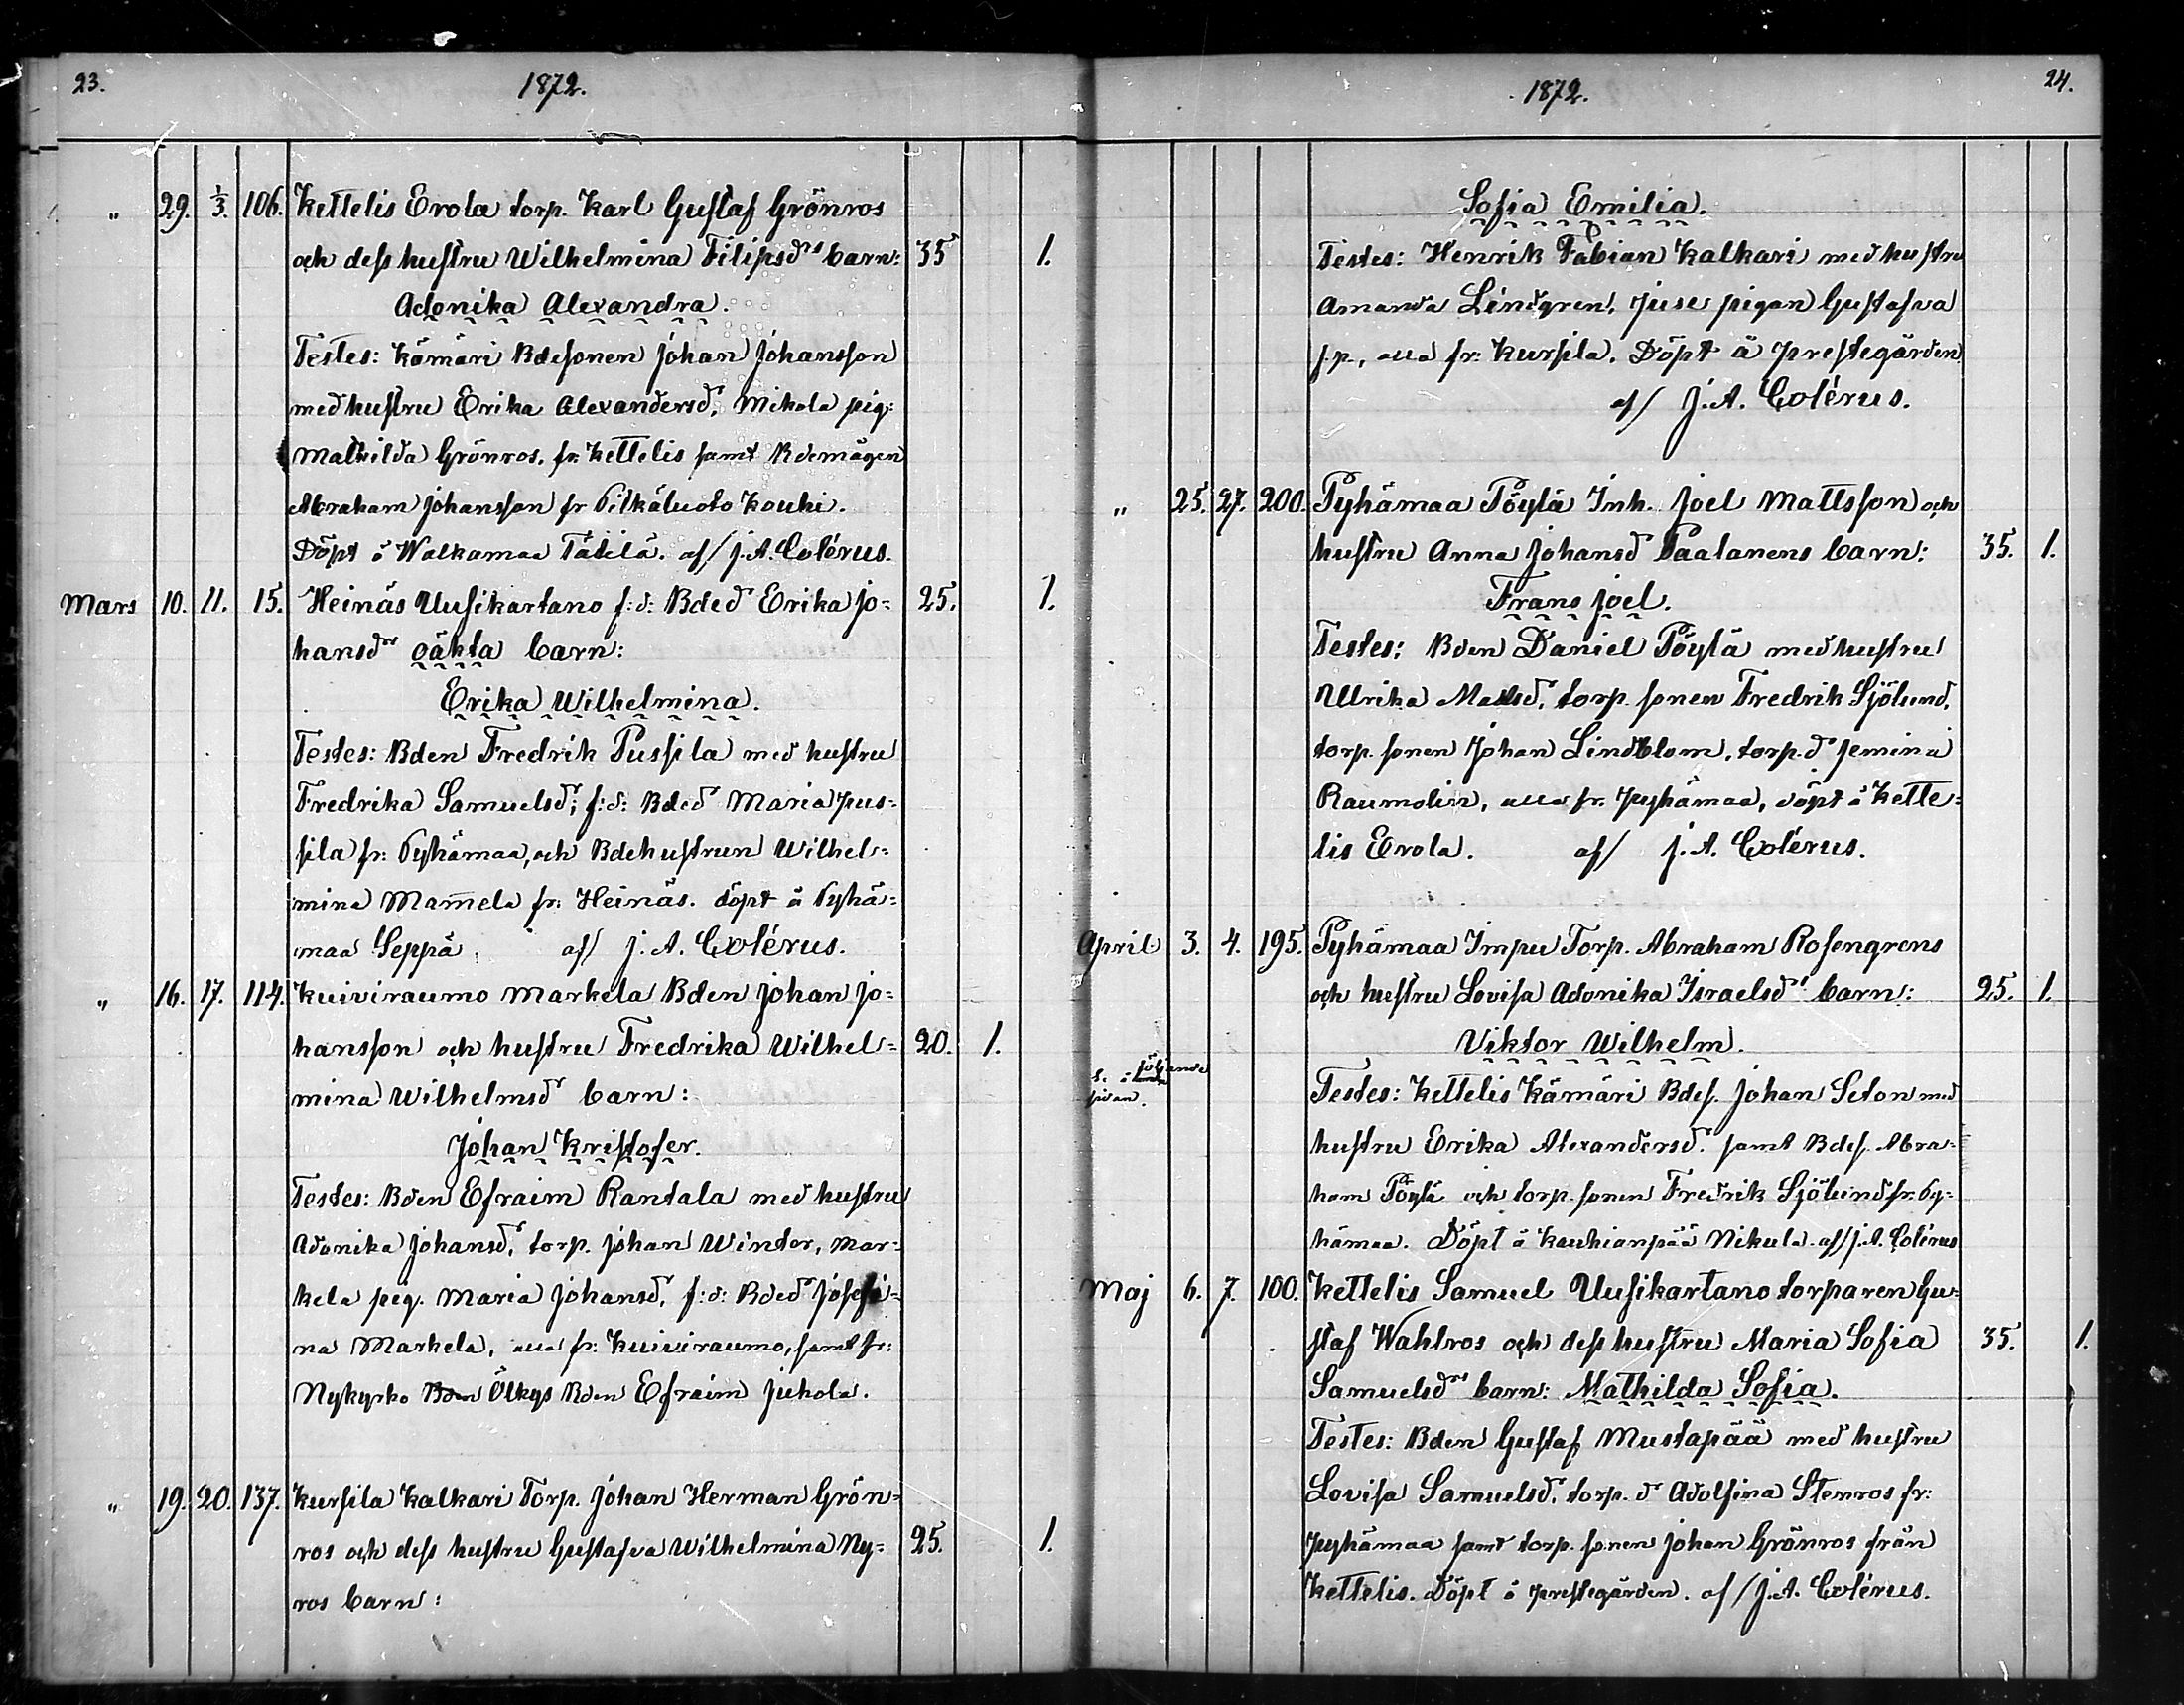 23.
1872.
" 29. 1/3. 106. Kettelis Erola torp. Karl Gustaf Grönros
och dess hustru Wilhelmina Filipsdrs barn: 35 1.
Adonika Alexandra.
Testes: Kämäri Bdesonen Johan Johansson
med hustru Erika Alexandersdr, Mikola pig:
Mathilda Grönros, fr. Kettelis samt Bdemågen
Abraham Johansson fr Pitkäluoto Kouhi.
Döpt å Walkamaa Tätilä. af/ J.A. Colérus.
Mars 10. 11. 15. Heinäs Uusikartano f:d: Bded Erika Jo= 25. 1.
hansdrs oäkta barn:
Erika Wilhelmina.
Testes: Bden Fredrik Pussila med hustru
Fredrika Samuelsdr; f:d: Bded Maria Pus=
sila fr: Pyhämaa, och Bdehustrun Wilhel=
mina Mam̄ela fr: Heinäs. döpt å Pyhä=
maa Seppä. af/ J.A. Colérus.
" 16. 17. 114. Kuiviraumo Markela Bden Johan Jo=
hansson och hustru Fredrika Wilhel= 20. 1.
mina Wilhelmsdr barn:
Johan Kristofer.
Testes: Bden Efraim Rantala med hustru
Adonika Johansdr, torp. Johan Winter, Mar=
kela pig. Maria Johansd, f:d: Bded Josefi=
na Markela, alla fr: Kuiviraumo, samt fr:
Nykyrko Bden Ölkys Bden Efraim Juhola.
" 19. 20. 137. Kursila Kalkari Torp. Johan Herman Grön=
ros och dess hustru Gustafva Wilhelmina Ny= 25. 1.
ros barn:
1872.
24.
Sofia Emilia.
Testes: Henrik Fabian Kalkari med hustru
Amanda Lindgren, Juse pigan Gustafva
, alla fr: Kursila. Döpt å prestegården
af/ J.A. Colérus.
" 25. 27. 200. Pyhämaa Pöylä Inh. Joel Mattsson och
hustru Anna Johansd Paalanens barn: 35. 1.
Frans Joel.
Testes: Bden Daniel Pöylä med hustru
Ulrika Matsdr, torp. sonen Fredrik Sjölund,
torp. sonen Johan Lindblom, torp. d Jemina
Raumolin, alla fr. Pyhämaa, döpt å Kette=
lis Erola. af/ J.A. Colérus.
April 3. 4. 195. Pyhämaa Impu Torp. Abraham Rosengrens
och hustru Lovisa Adonika Israelsdrs barn: 25. 1.
Viktor Wilhelm.
s. å följande
sidan.
Testes: Kettelis Kämäri Bdes. Johan Seton med
hustru Erika Alexandersdr. samt Bdes. Abra=
ham Pöylä och torp. sonen Fredrik Sjölund fr. Py=
hämaa. Döpt å Kauhianpää Nikula. af/ J.A. Colérus
Maj 6. 7. 100. Kettelis Samuel Uusikartano torparen Gu=
staf Wahlros och dess hustru Maria Sofia 35. 1.
Samuelsdrs barn: Mathilda Sofia.
Testes: Bden Gustaf Mustapää med hustru
Lovisa Samuelsdr, torp. d Adolfina Stenros fr:
Pyhämaa samt torp. sonen Johan Grönros från
Kettelis. Döpt å prestegården. af/ J.A. Colérus.